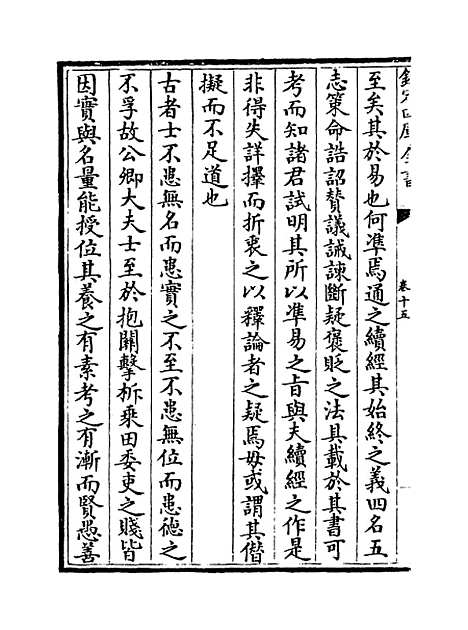 欽定四庫全書
卷十五
至矣其於易也何準焉通之續經其始終之義四名五
志策命誥詔贊議誡諫斷疑褒貶之法具載於其書可
考而知諸君試明其所以準易之旨與夫續經之作是
非得失詳擇而折衷之以釋論者之疑焉毋或謂其僣
擬而不足道也
古者士不患無名而患實之不至不患無位而患德之
不孚故公卿大夫士至於抱關擊柝乘田委吏之賤皆
因實與名量能授位其養之有素考之有漸而賢愚善